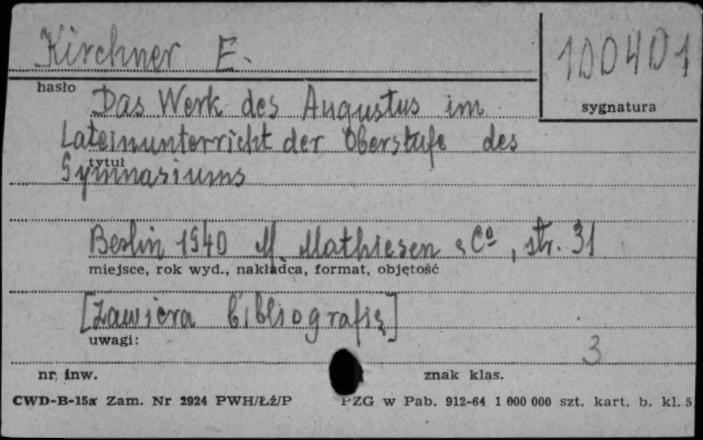 Kirchner E.
100401
hasło
sygnatura
Das Werk des Augustus im
Lateinunterricht der Oberstufe des
tytuł
Gymnasiums
Berlin 1940 M. Mathiesen & Co, str. 31
miejsce, rok wyd., nakładca, format, objętość
[Zawiera bibliografię]
uwagi:
3
nr. inw.
znak klas.
CWD-B-15a Zam. Nr 2924 PWH/Łź/P PZG w Pab. 912-64 1 000 000 szt. kart. b. kl. 5